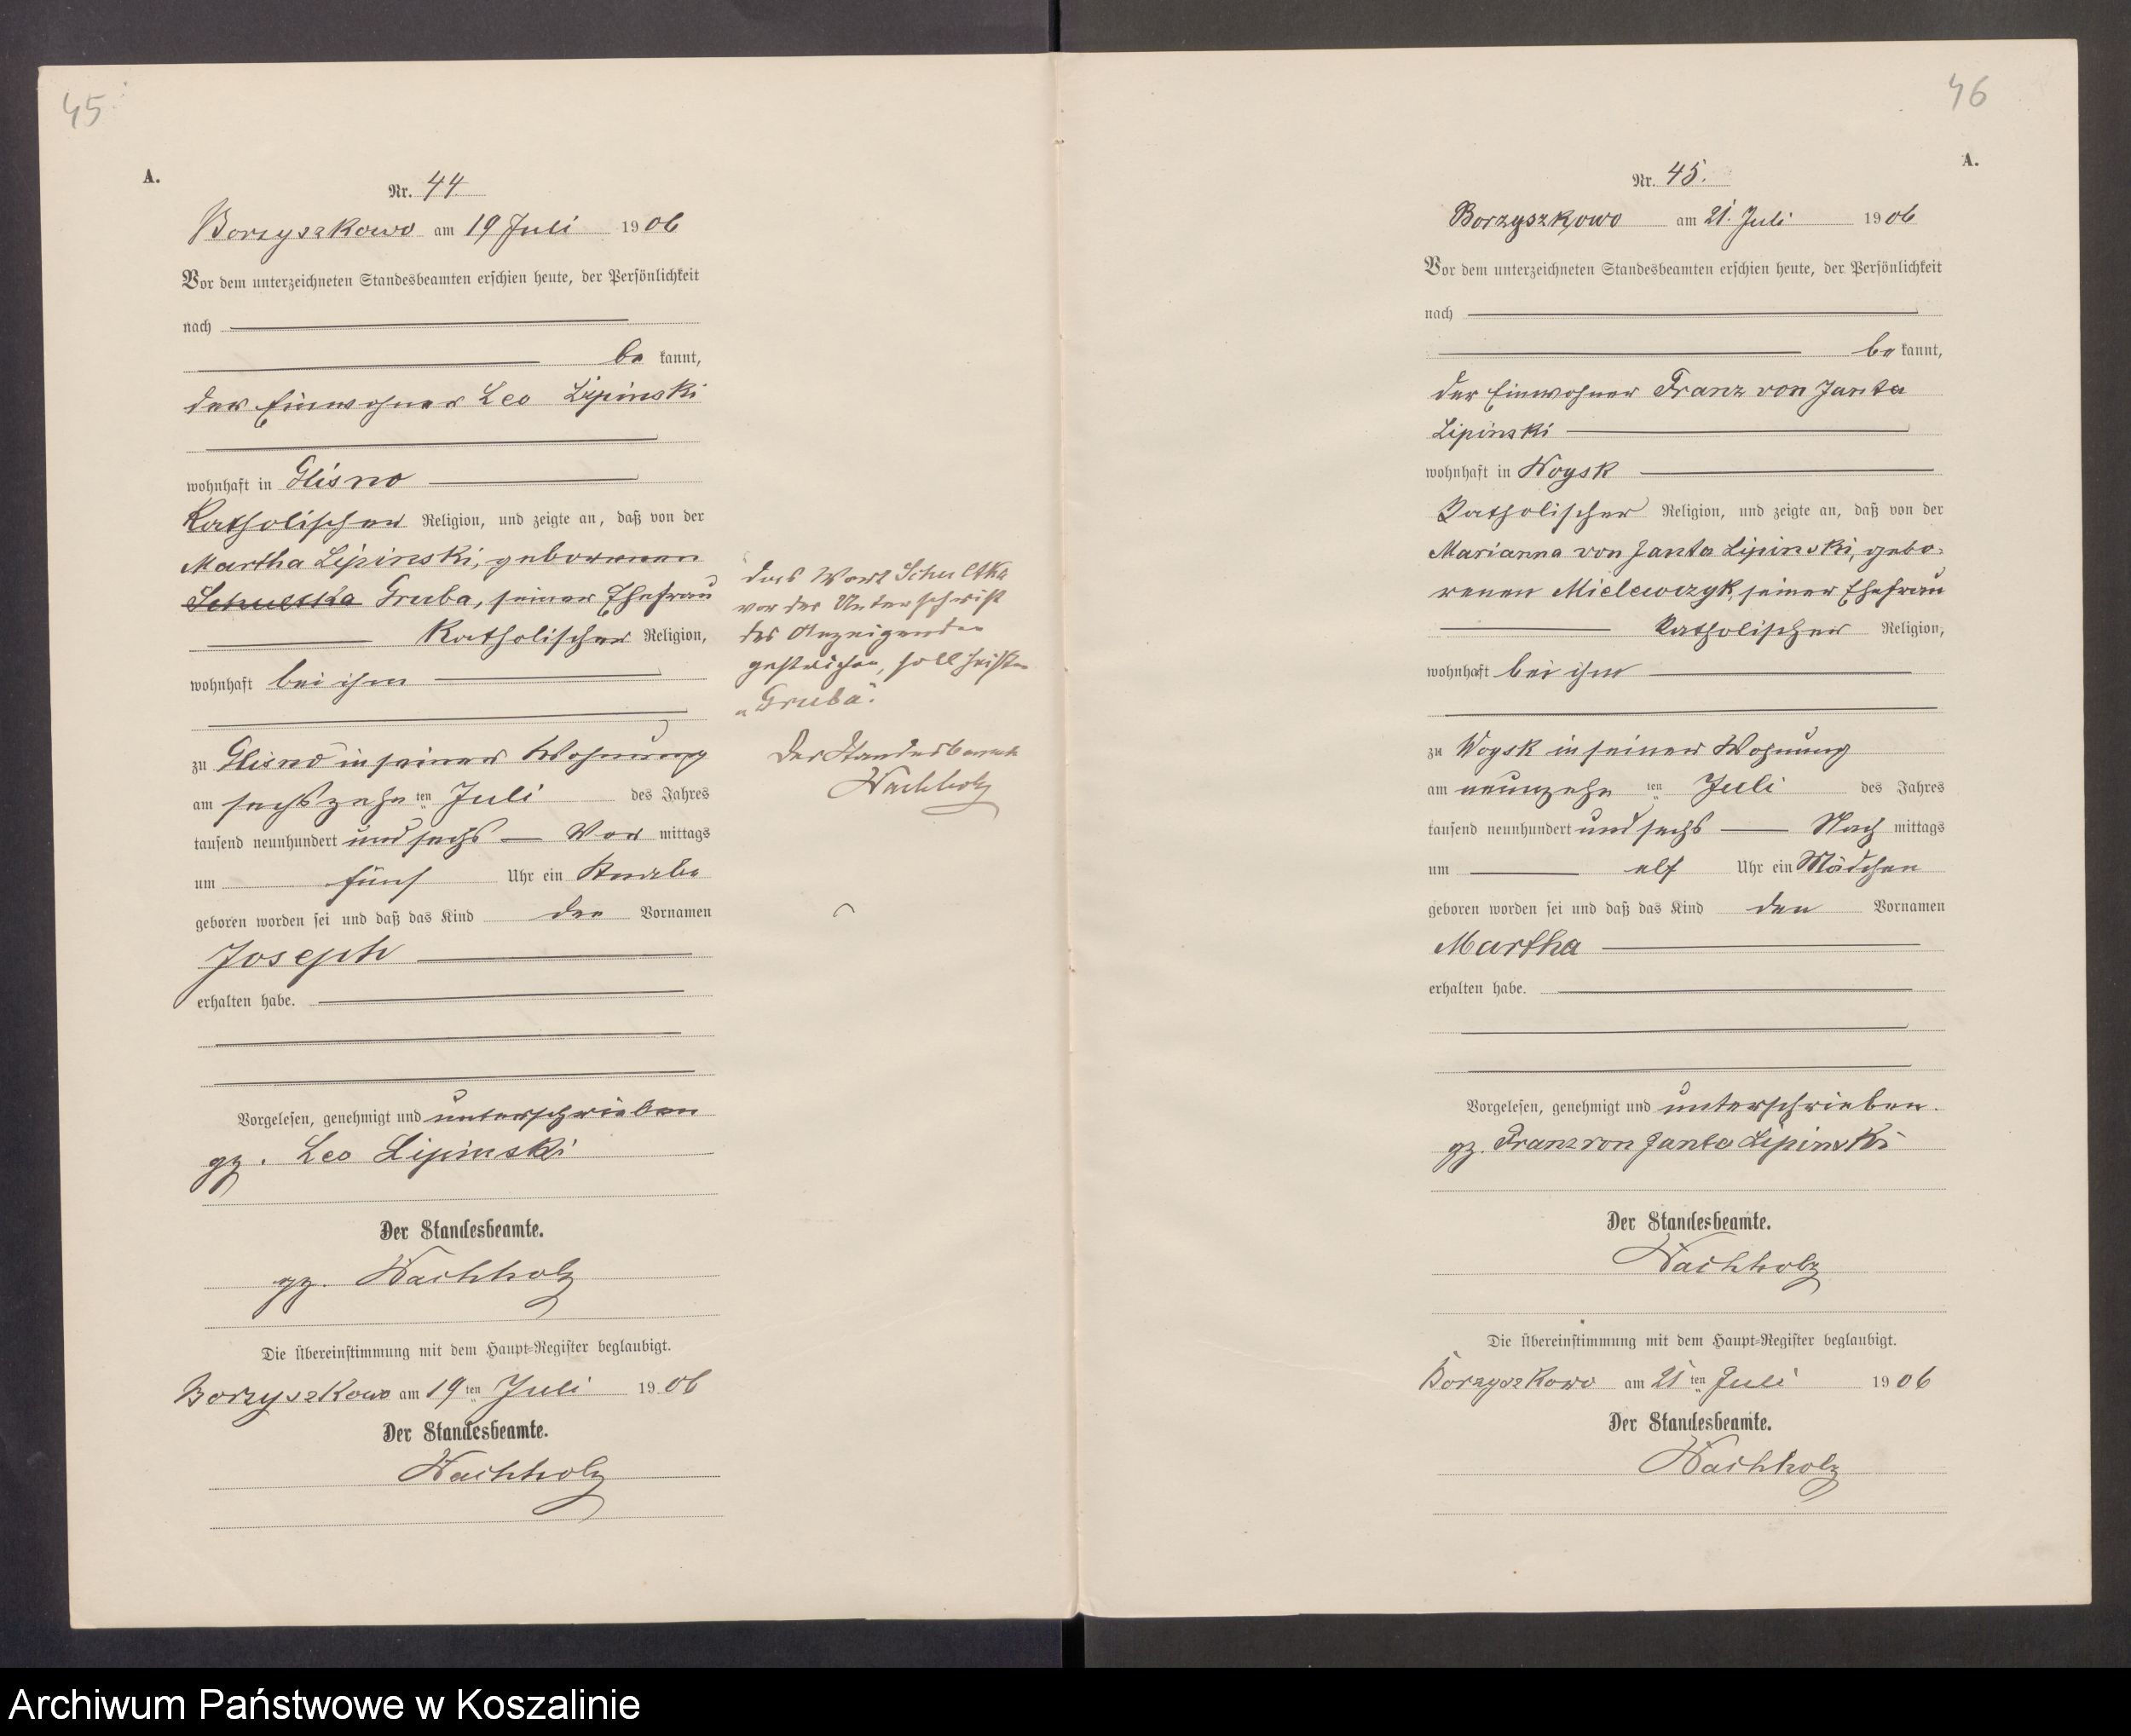 45
A.
Nr. 44
Borzyszkowo am 19 Juli 1906
Vor dem unterzeichneten Standesbeamten erschien heute, der Persönlichkeit
nach
be kannt,
der Einwohner Leo Lipinski
wohnhaft in Glisno
katholischer Religion, und zeigte an, daß von der
Martha Lipinski, geborenen
Schultka Gruba, seiner Ehefrau
katholischer Religion,
wohnhaft bei ihm
zu Glisno in seiner Wohnung
am sechszehn ten Juli des Jahres
tausend neunhundert und sechs Vor mittags
um fünf Uhr ein Knabe
geboren worden sei und daß das Kind den Vornamen
Joseph
erhalten habe.
Vorgelesen, genehmigt und unterschrieben
gz. Leo Lipinski
Der Standesbeamte.
gz. Wachholz
Die Übereinstimmung mit dem Haupt-Register beglaubigt.
Borzyszkowo am 19 ten Juli 1906
Der Standesbeamte.
Wachholz
das Wort Schultka
vor der Unterschrift
des Anzeigenden
gestrichen, soll heißen
„Gruba".
Der Standesbeamte
Wachholz
46
A.
Nr. 45.
Borzyszkowo am 21. Juli 1906
Vor dem unterzeichneten Standesbeamten erschien heute, der Persönlichkeit
nach
be kannt,
der Einwohner Franz von Janta
Lipinski
wohnhaft in Woysk
katholischer Religion, und zeigte an, daß von der
Marianna von Janta Lipinski, gebo-
renen Mielewczyk, seiner Ehefrau
katholischer Religion,
wohnhaft bei ihm
zu Woysk in seiner Wohnung
am neunzehn ten Juli des Jahres
tausend neunhundert und sechs Nach mittags
um elf Uhr ein Mädchen
geboren worden sei und daß das Kind den Vornamen
Martha
erhalten habe.
Vorgelesen, genehmigt und unterschrieben.
gz. Franz von Janta Lipinski
Der Standesbeamte.
Wachholz
Die Übereinstimmung mit dem Haupt-Register beglaubigt.
Borzyszkowo am 21 ten Juli 1906
Der Standesbeamte.
Wachholz
Archiwum Państwowe w Koszalinie